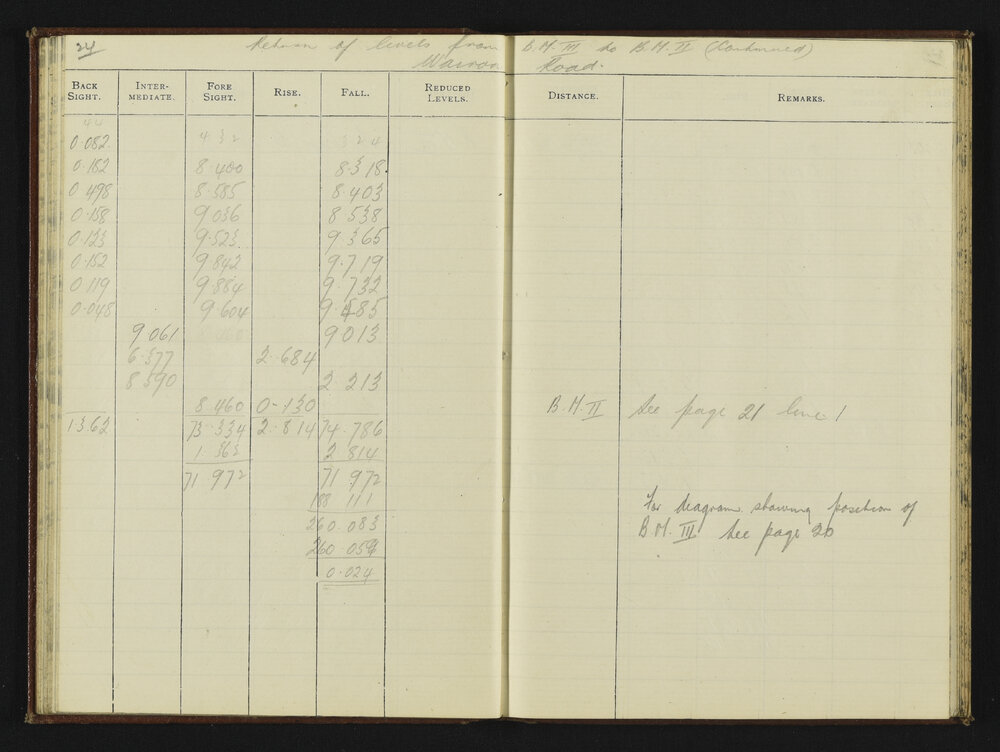 24 Return of levels from B.M. III to B.M. II (Continued)
Road.
BACK SIGHT. INTER-MEDIATE. FORE SIGHT. RISE. FALL. REDUCED LEVELS. DISTANCE. REMARKS.
44
0.082 4 3 2 3 2 4
0.182 8.400 8.318
0.498 8.585 8.403
0.158 9.036 8.538
0.123 9.523 9.365
0.152 9.842 9.719
0.119 9.884 9.732
0.048 9.604 9.485
9.061 9.013
6.377 2.684
8.590 2.213
8.460 0.130 B.M. II See page 21 line 1
1362 73.334 2.814 74.786
1.363 2.814
71.972 71.972
188 111
260.083 For diagram showing position of
260.059 B.M. III see page 20
0.024